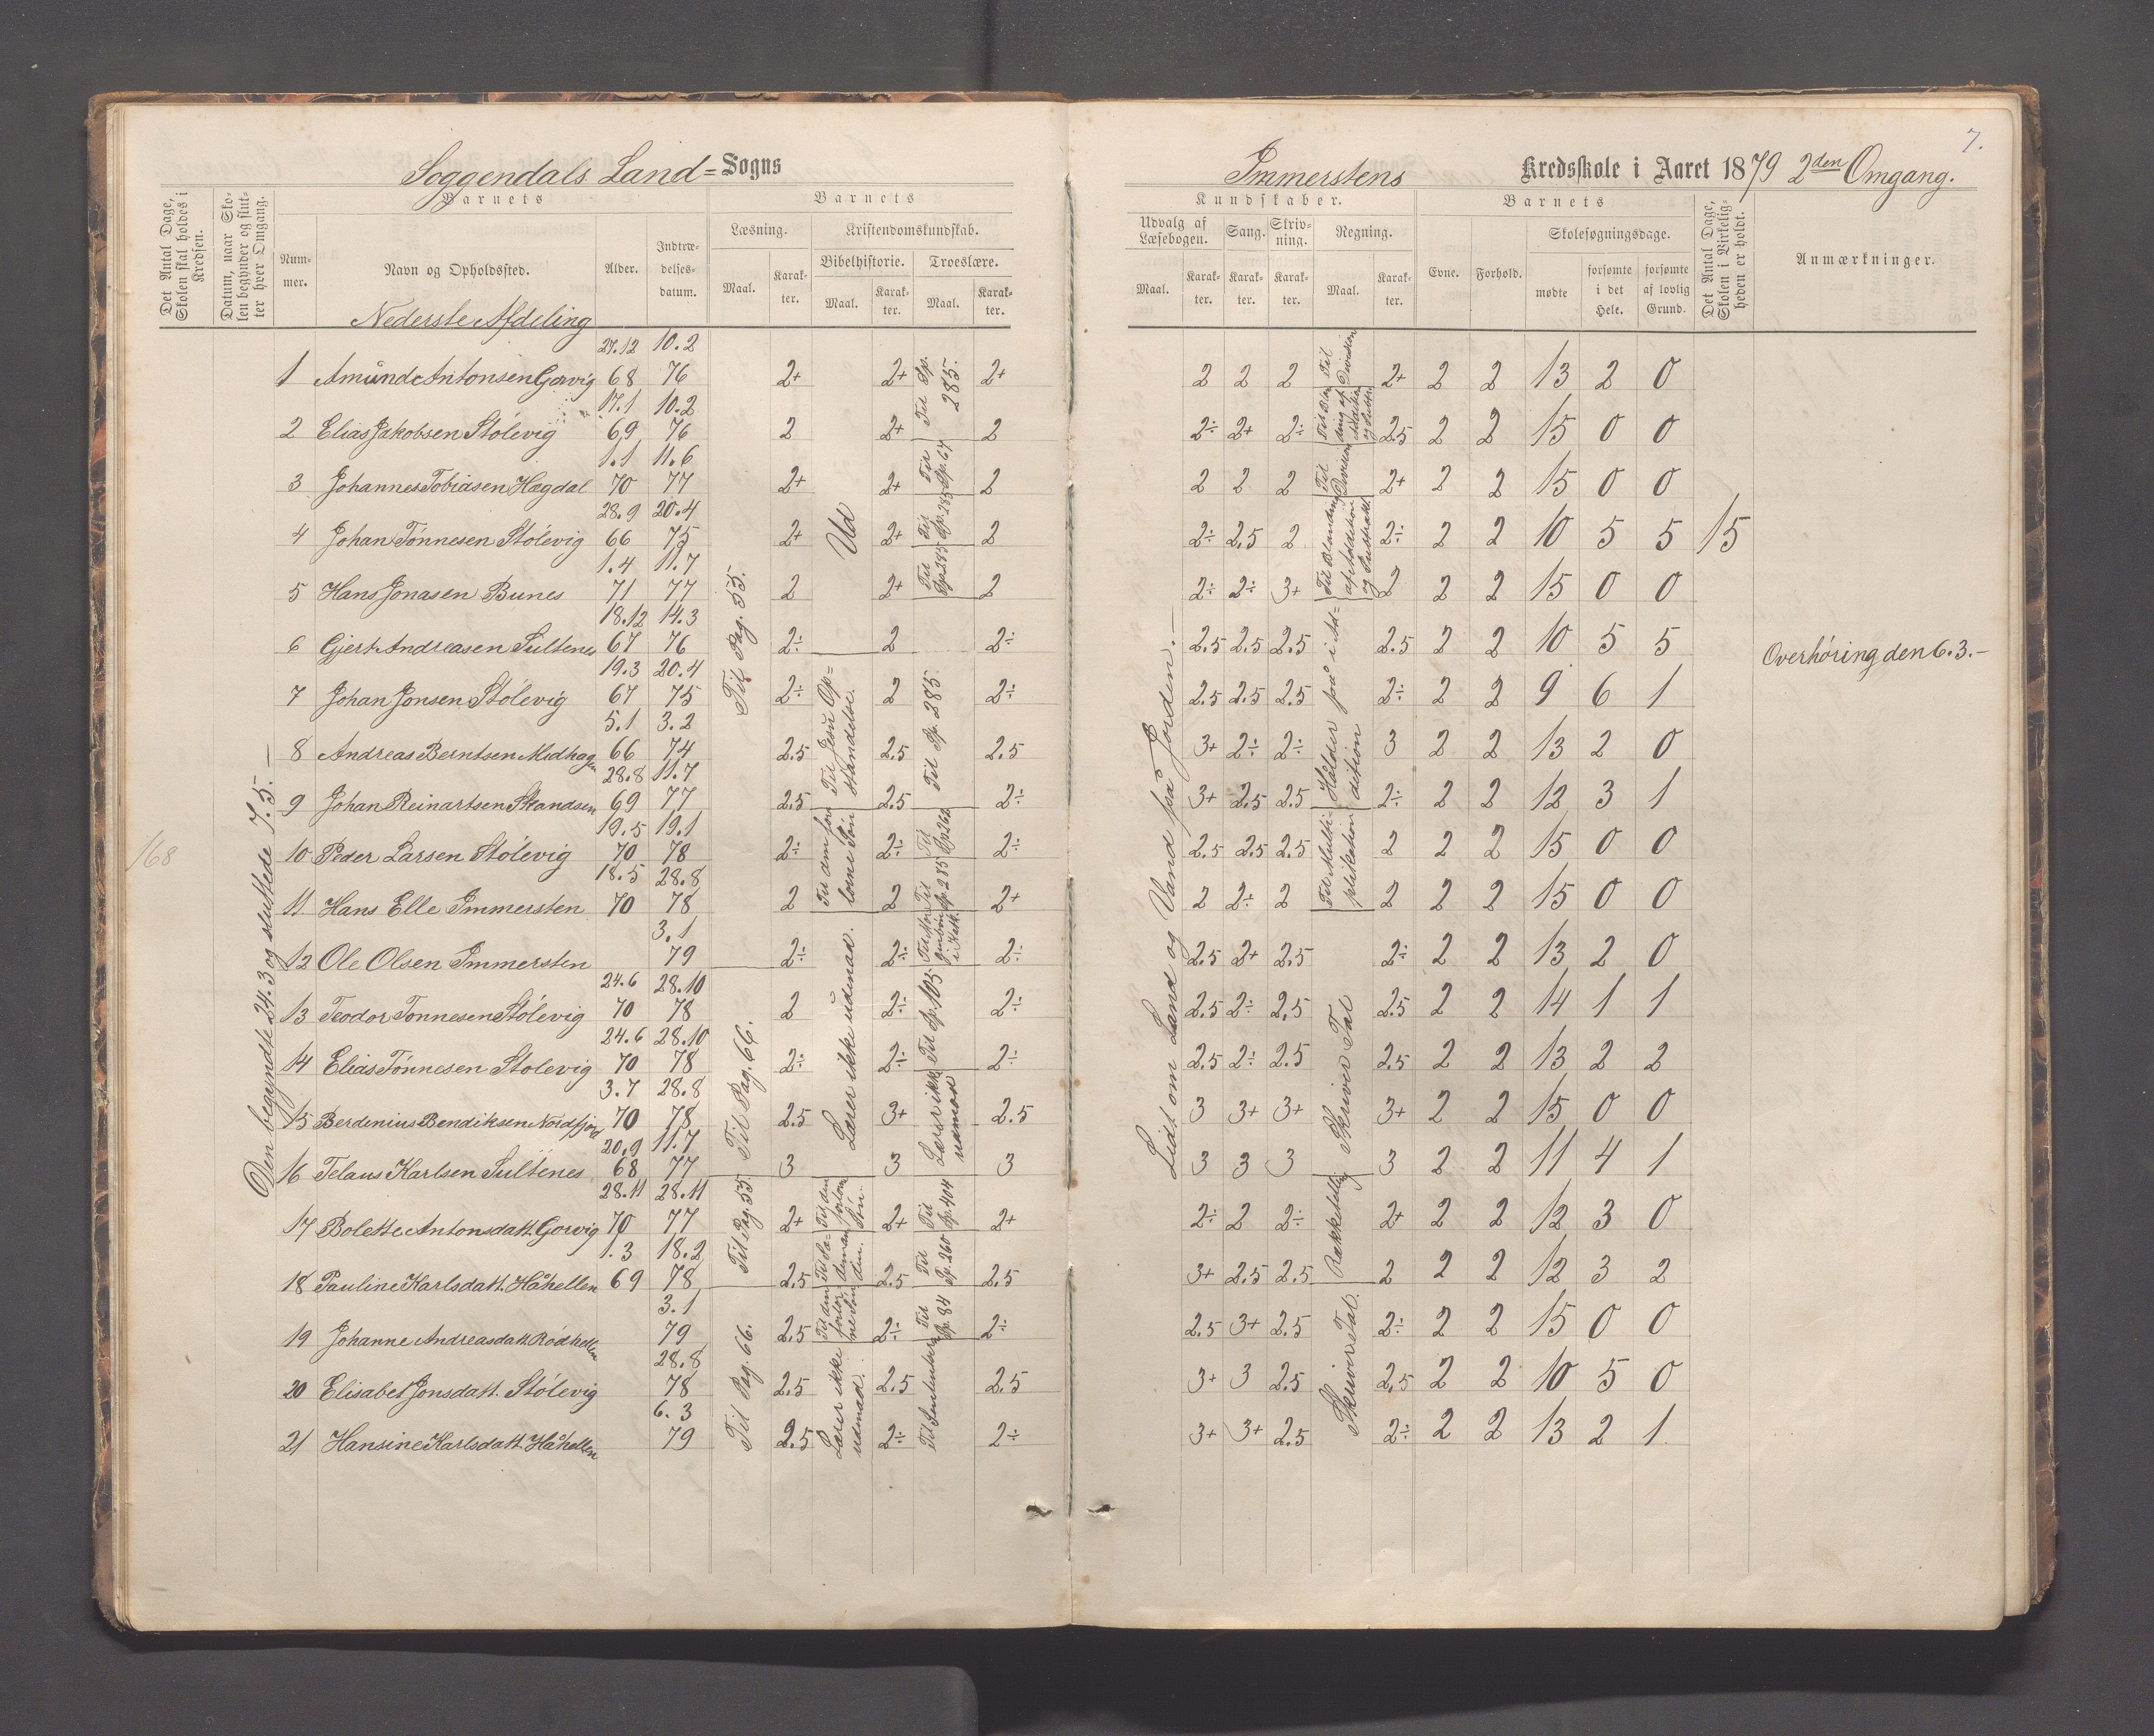 7.
Soggendals Land = Sogns
Immerstens Kredsskole i Aaret 1879 2den Omgang.
Det Antal Dage, Skolen skal holdes i Kredsen.
Datum, naar Skolen begynder og slutter hver Omgang.
Barnets
Nummer.
Navn og Opholdssted.
Alder.
Indtrædelsesdatum.
Barnets
Læsning.
Maal.
Karakter.
Kristendomskundskab.
Bibelhistorie.
Maal.
Karakter.
Troeslære.
Maal.
Karakter.
Kundskaber.
Udvalg af Læsebogen.
Maal.
Karakter.
Sang.
Karakter.
Skrivning.
Karakter.
Regning.
Maal.
Karakter.
Barnets
Evne.
Forhold.
Skolesøgningsdage.
mødte
forsømte i det Hele.
forsømte af lovlig Grund.
Det Antal Dage, Skolen i Virkeligheden er holdt.
Anmærkninger.
Nederste Afdeling
168
Den begyndte 24.3 og sluttede 7.5. —
1 Amund Antonsen Gorvig 27.12 68 10.2 76 2+ 2+ 2+ 2 2 2 2+ 2 2 13 2 0
2 Elias Jakobsen Stölevig 17.1 69 10.2 76 2 2+ 2 2÷ 2+ 2÷ 2.5 2 2 15 0 0
3 Johannes Tobiasen Hægdal 1.1 70 11.6 77 2+ 2+ 2 2 2 2 2+ 2 2 15 0 0
4 Johan Tönnesen Stölevig 28.9 66 20.4 75 2+ 2+ 2 2÷ 2.5 2 2÷ 2 2 10 5 5 15
5 Hans Jonasen Bunes 1.4 71 11.7 77 2 2+ 2 2÷ 2÷ 3+ 2 2 2 15 0 0
6 Gjert Andreasen Sultenes 18.12 67 14.3 76 2÷ 2 2÷ 2.5 2.5 2.5 2.5 2 2 10 5 5 Overhöring den 6.3.—
7 Johan Jonsen Stölevig 19.3 67 20.4 75 2÷ 2 2÷ 2.5 2.5 2.5 2÷ 2 2 9 6 1
8 Andreas Berntsen Midhagen 5.1 66 3.2 74 2.5 2.5 2.5 3+ 2÷ 2÷ 3 2 2 13 2 0
9 Johan Reinartsen Skandsen 28.8 69 11.7 77 2.5 2.5 2÷ 3+ 2.5 2.5 2÷ 2 2 12 3 1
10 Peder Larsen Stölevig 19.5 70 19.1 78 2÷ 2÷ 2÷ 2.5 2.5 2.5 2 2 2 15 0 0
11 Hans Elle Immersten 18.5 70 28.8 78 2 2 2+ 2 2÷ 2 2 2 2 15 0 0
12 Ole Olsen Immersten 3.1 79 2÷ 2÷ 2÷ 2.5 2+ 2.5 2÷ 2 2 13 2 0
13 Teodor Tonnesen Stölevig 24.6 70 28.10 78 2 2÷ 2÷ 2.5 2÷ 2.5 2.5 2 2 14 1 1
14 Elias Tönnesen Stolevig 24.6 70 28.10 78 2÷ 2÷ 2÷ 2.5 2÷ 2.5 2.5 2 2 13 2 2
15 Berdinius Bendiksen Nordfjord 3.7 70 28.8 78 2.5 3+ 2.5 3 3+ 3+ 3+ 2 2 15 0 0
16 Telaus Karlsen Sultenes 20.9 68 11.7 77 3 3 3 3 3 3 3 2 2 11 4 1
17 Bolette Antonsdatt. Gorvig 28.11 70 28.11 77 2+ 2+ 2+ 2÷ 2 2÷ 2+ 2 2 12 3 0
18 Pauline Karlsdatt. Håhellen 1.3 69 18.2 78 2.5 2.5 2.5 3+ 2.5 2.5 2 2 2 12 3 2
19 Johanne Andreasdatt. Rödhellen 3.1 79 2.5 2÷ 2÷ 2.5 3+ 2.5 2÷ 2 2 15 0 0
20 Elisabet Jonsdatt. Stölevig 28.8 78 2.5 2.5 2.5 3+ 3 2.5 2.5 2 2 10 5 0
21 Hansine Karlsdatt. Håhellen 6.3 79 2.5 2÷ 2÷ 3+ 3+ 2.5 2÷ 2 2 13 2 1
Til Pag. 55.
Til Pag. 66.
Til Pag. 55
Til Pag. 66.
Ud
Til Jesu Opstandelse.
Lærer ikke udenad.
Lærer ikke udenad.
Til Sp. 285.
Til Sp. 67
Til Sp. 285
Til Sp. 285
Til Sp. 285
Til Sp. 262
Til Sp. 285
Til Sp. 105
Lærer ikke udenad
Til Sp. 404
Til Sp. 260
Til Sp. 84
Lidt om Land og Vand på Jorden. —
Til Division
Til Division
Til Blanding af Addition og Subtrakt.
Holder på i Addition
Til Multiplikation
Skriver Tal
Skriver Tal.